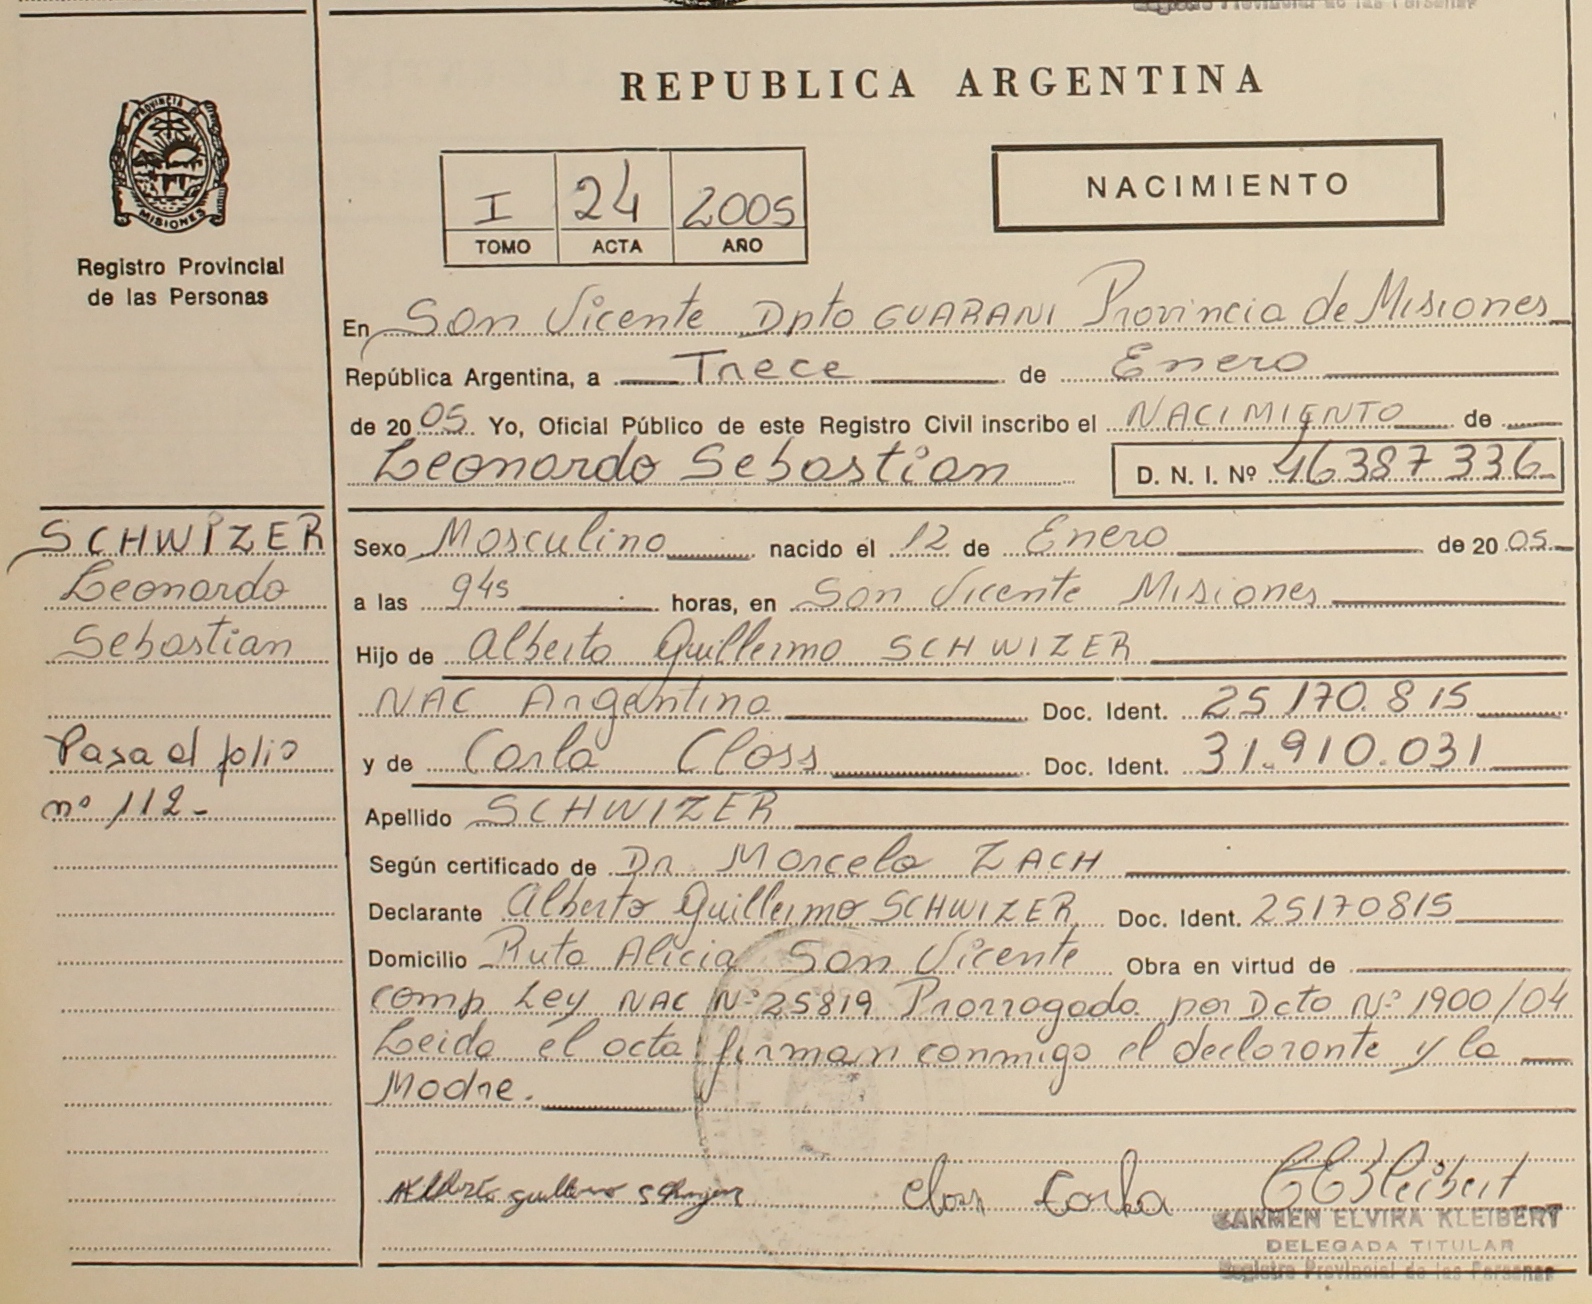 Registro Provincial de las Personas
REPUBLICA ARGENTINA
PROVINCIA
MISIONES
Registro Provincial
de las Personas
I 24 2005
TOMO ACTA AÑO
NACIMIENTO
En San Vicente Dpto GUARANI Provincia de Misiones
República Argentina, a Trece de Enero
de 2005 Yo, Oficial Público de este Registro Civil inscribo el NACIMIENTO de
Leonardo Sebastian D. N. I. Nº 46387336
SCHWIZER
Leonardo
Sebastian
Pasa al folio
nº 112-
Sexo Masculino nacido el 12 de Enero de 2005
a las 945 horas, en San Vicente Misiones
Hijo de Alberto Guillermo SCHWIZER
NAC Argentina Doc. Ident. 25170.815
y de Carla Closs Doc. Ident. 31.910.031
Apellido SCHWIZER
Según certificado de Dr. Marcelo ZACH
Declarante Alberto Guillermo SCHWIZER Doc. Ident. 25170815
Domicilio Ruta Alicia San Vicente Obra en virtud de
comp Ley NAC Nº 25819 Prorrogada por Dcto Nº 1900/04
Leida el acta firman conmigo el declarante y la
Madre.
Alberto guillermo Closs Carla CEKleibert
CARMEN ELVIRA KLEIBERT
DELEGADA TITULAR
Registro Provincial de las Personas